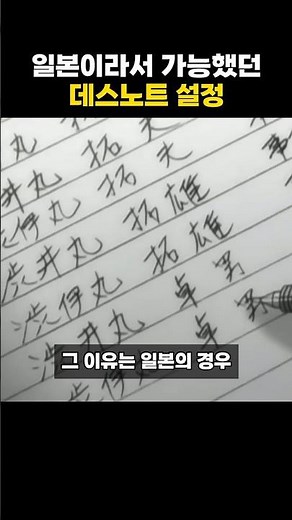 일본이라서 가능했던
데스노트 설정
丸 拓 夫
井丸 拓 夫 事
渋伊丸 拓雄
渋井丸 拓雄
渋伊丸 卓男
渋井丸 卓男
그 이유는 일본의 경우
渋伊丸